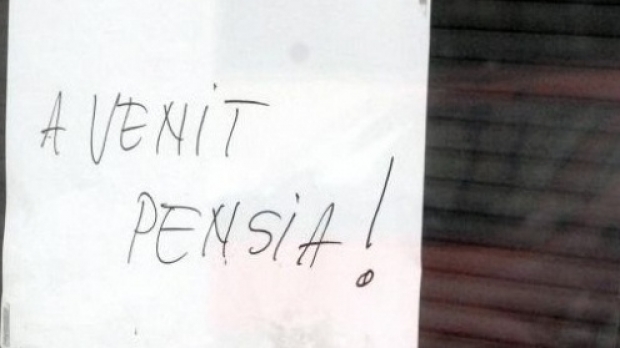 A VENiT
PENSiA!